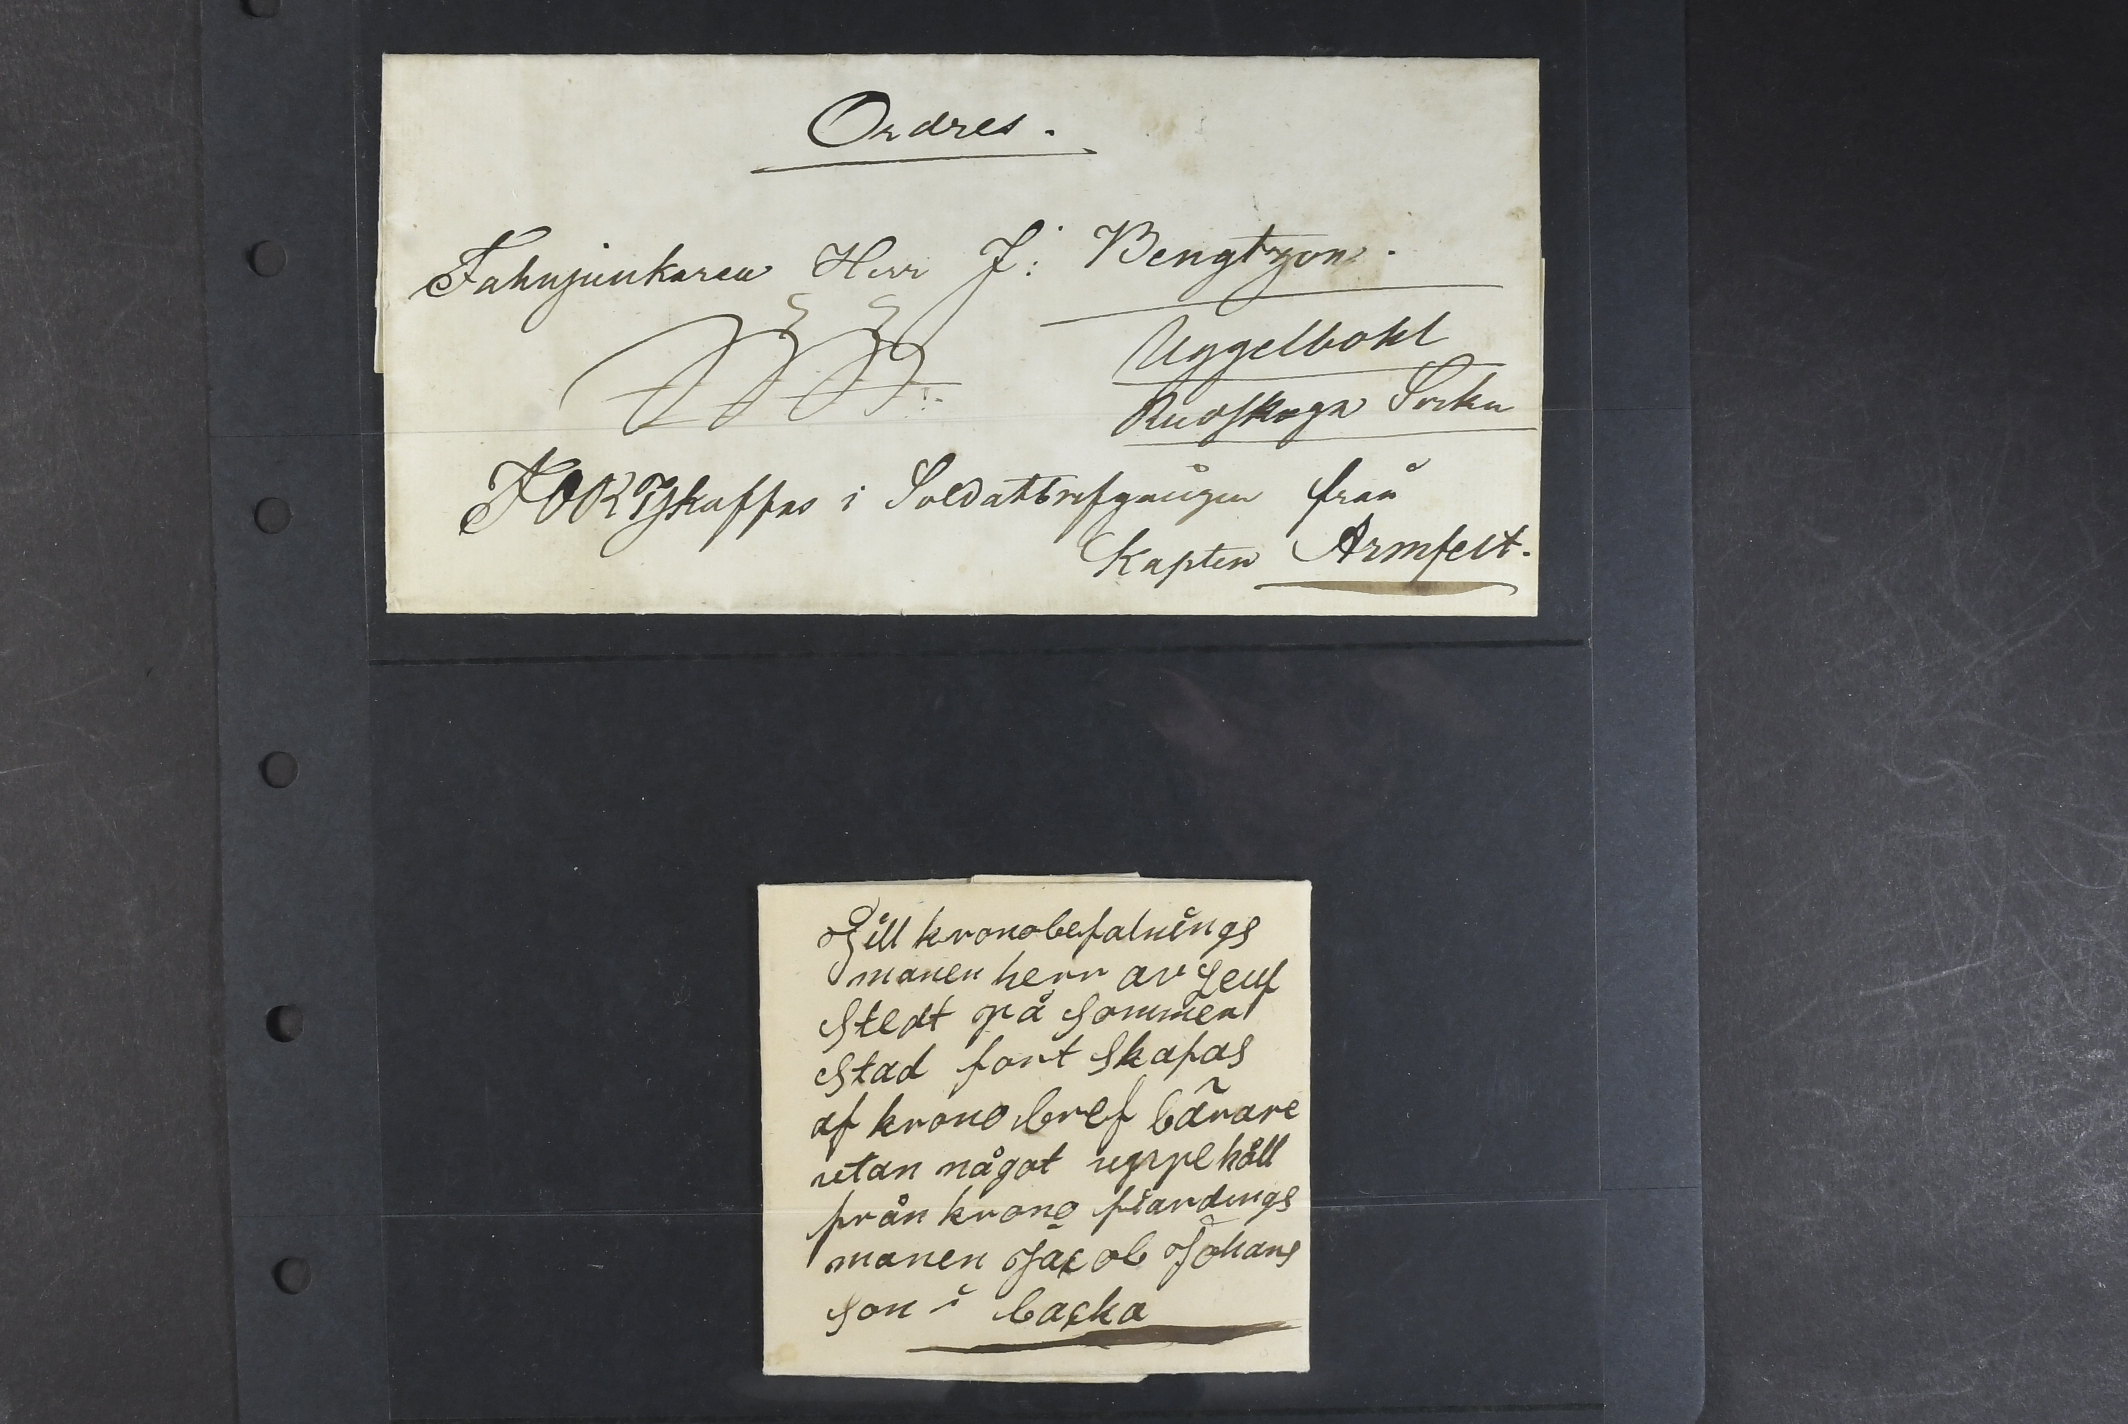 Ordres.
Fahnjunkaren Herr J: Bengtzon.
Uggelbohl
Rudskoga Sockn
FORTskaffas i Soldattsrefgången från
Kapten Armfelt.
Till kronobefalnings
manen herr av Leuf
Stedt på Sommen
Stad fort Skafas
af krono bref bärare
utan något uppe håll
från krono fiardings
manen Jacob Johans
Son i backa